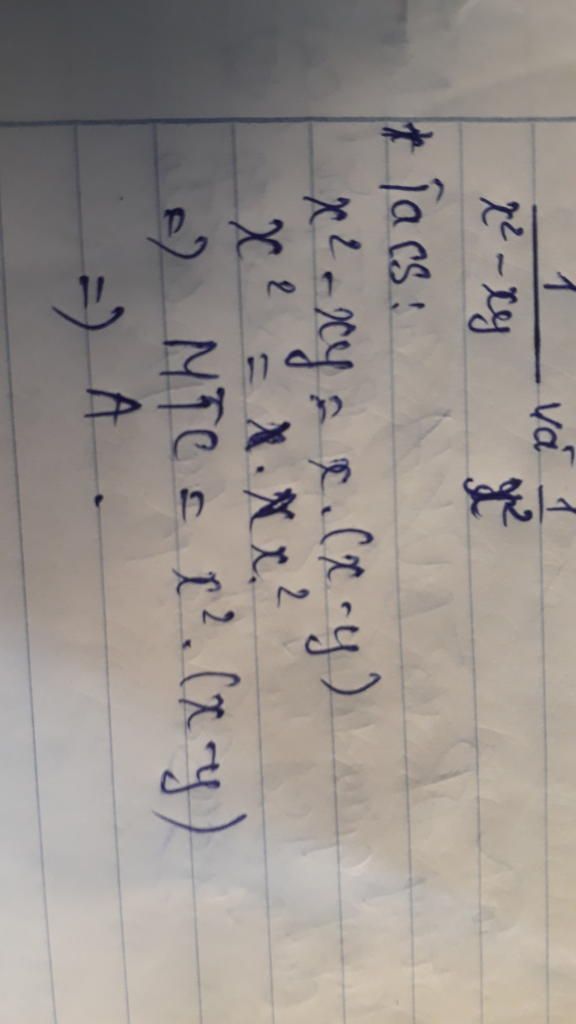 1/(x² - xy) và 1/x²
* Ta có:
x² - xy = x.(x - y)
x² = x²
=) MTC = x².(x - y)
=) A.